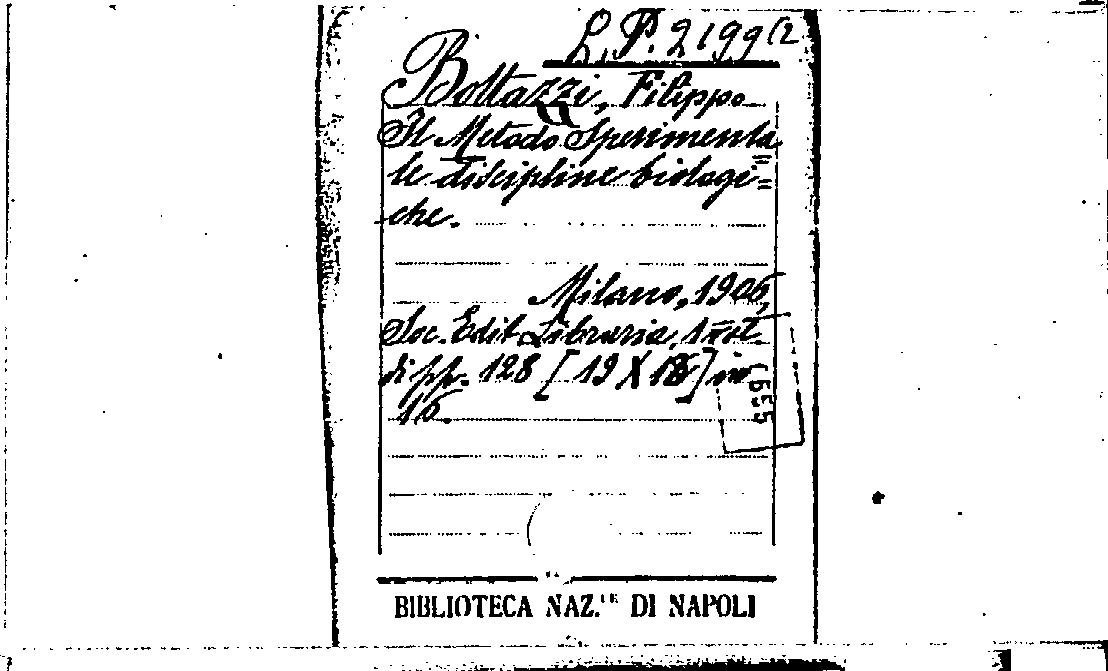 L.P. 2199 (2
Bottazzi, Filippo
Il Metodo Sperimenta=
le discipline biologi=
che.
Milano, 1906,
Soc. Edit. Libraria, 1 vol.
di pp. 128 [19 X 13] in
16.
BIBLIOTECA NAZ.LE DI NAPOLI